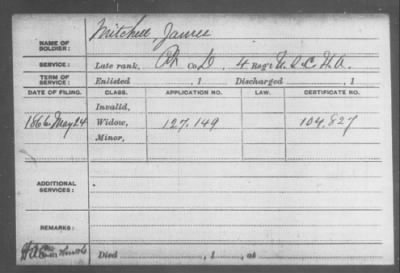 Mitchell, James
NAME OF SOLDIER:
SERVICE: Late rank, Pvt Co. D, 4 Reg't U.S.C.H.A.
TERM OF SERVICE: Enlisted , 1 Discharged , 1
DATE OF FILING. CLASS. APPLICATION NO. LAW. CERTIFICATE NO.
Invalid,
1866 May 24 Widow, 127.149 104.827
Minor,
ADDITIONAL SERVICES:
REMARKS:
Died , 1 , at